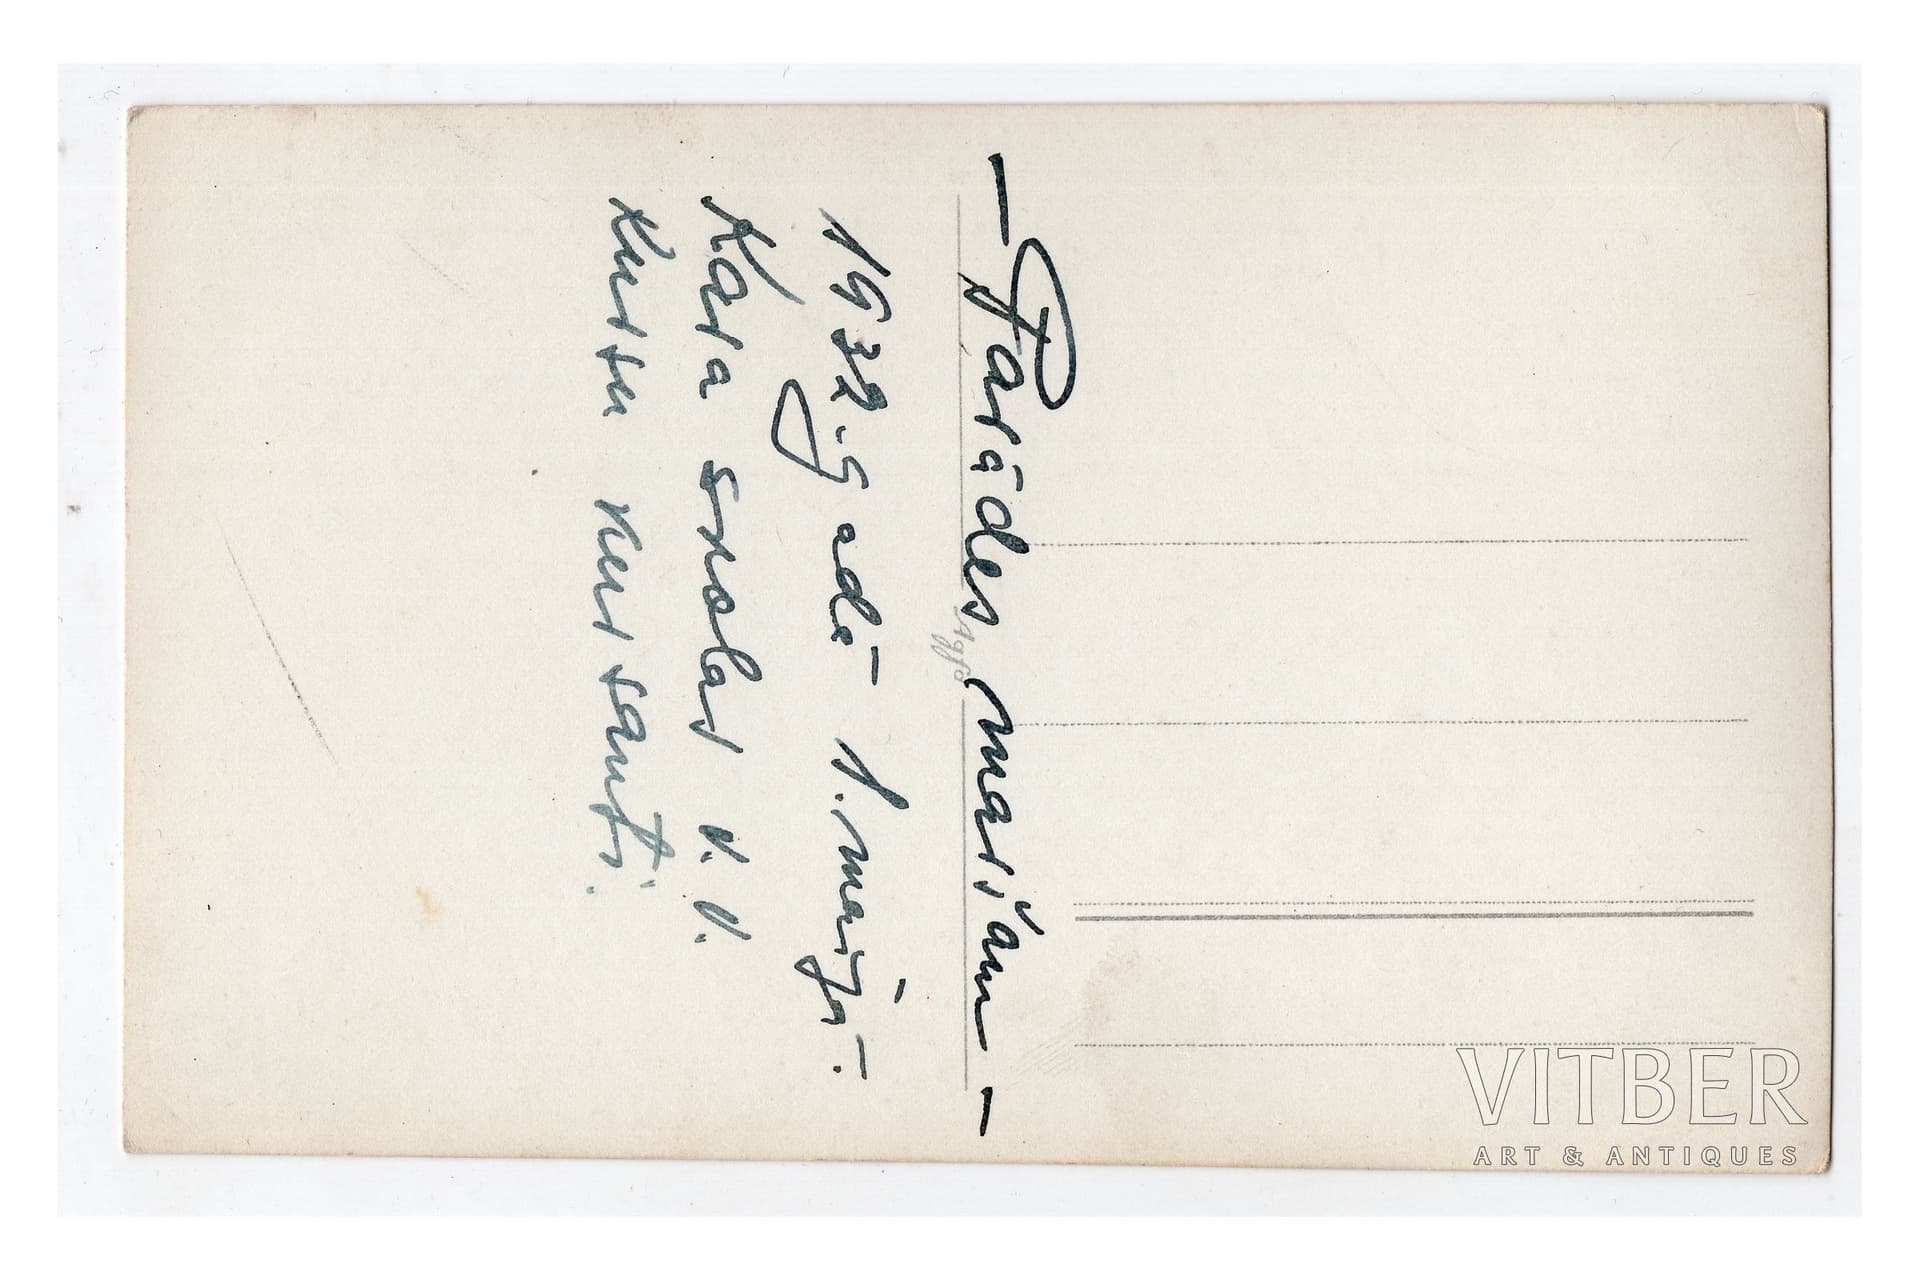 — Parādes maršam —
1932. gadā 1. maijā.
Kara skolas v. v.
kursu kursanti.
Agfa
VITBER
ART & ANTIQUES